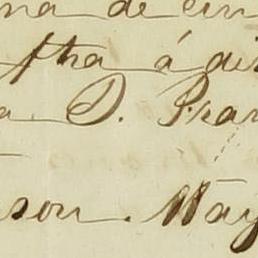 na de cin
fha á di
a D. Fran
son. May